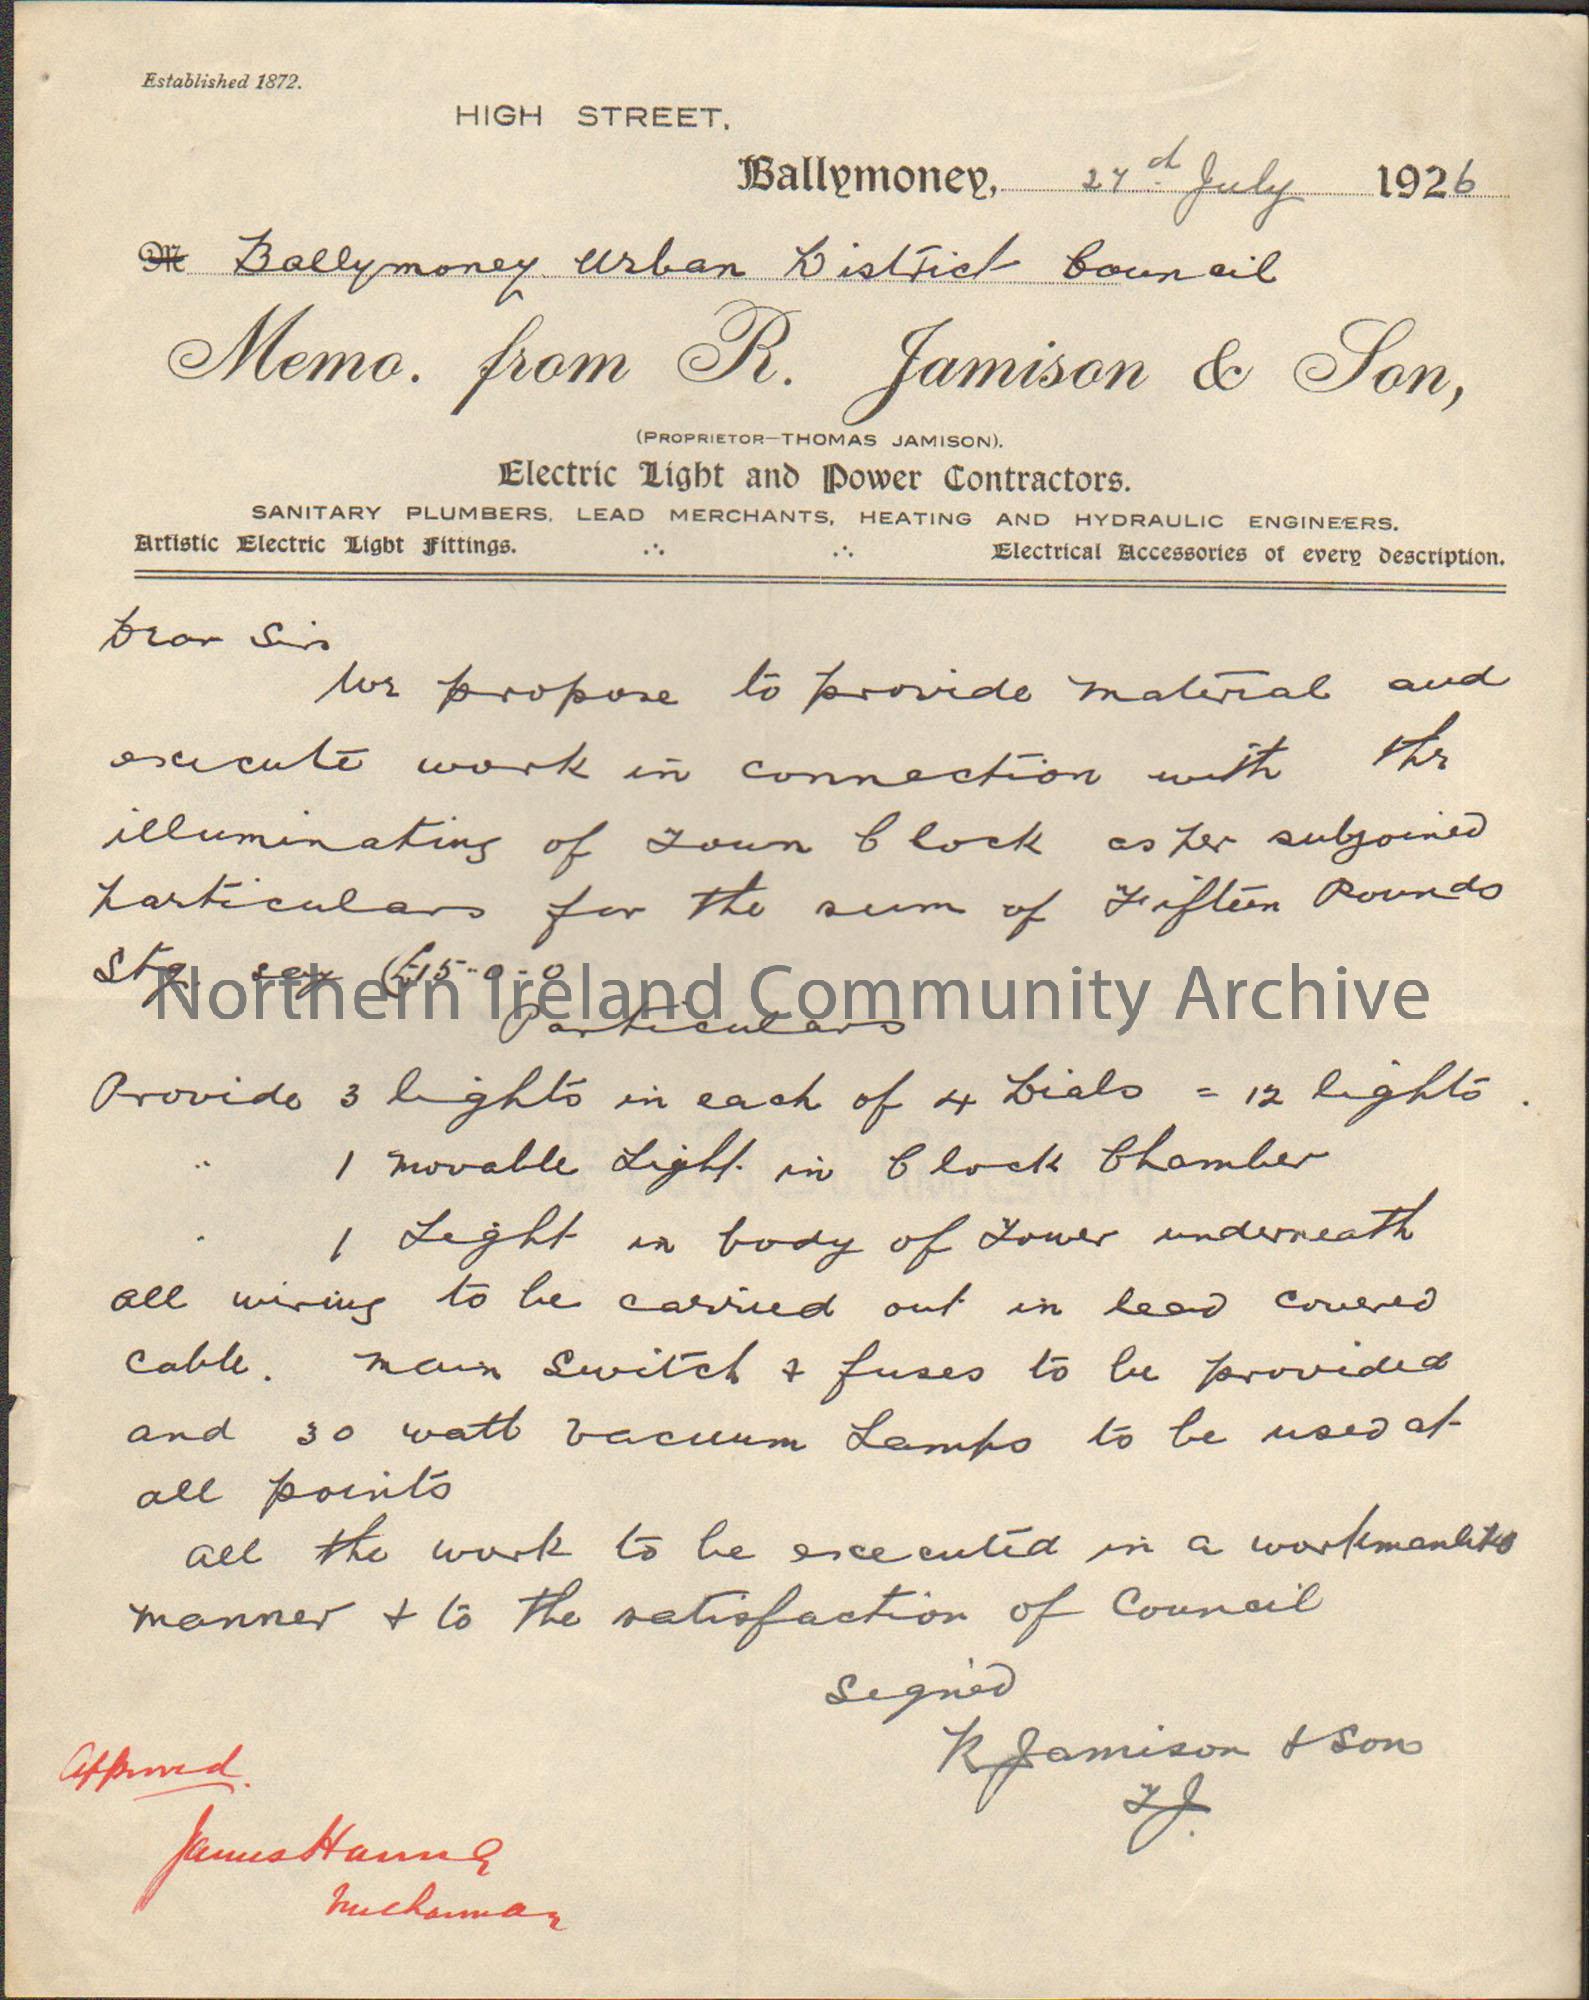 Established 1872.
HIGH STREET,
Ballymoney, 27th July 1926
M Ballymoney Urban District Council
Memo. from R. Jamison & Son,
(PROPRIETOR—THOMAS JAMISON).
Electric Light and Power Contractors.
SANITARY PLUMBERS, LEAD MERCHANTS, HEATING AND HYDRAULIC ENGINEERS.
Artistic Electric Light Fittings. ∴ ∴ Electrical Accessories of every description.
Dear Sirs
We propose to provide material and
execute work in connection with the
illuminating of Town Clock as per subjoined
particulars for the sum of Fifteen Pounds
Stg. say (£15-0-0
Northern Ireland Community Archive
Particulars
Provide 3 lights in each of 4 Dials = 12 lights.
" 1 movable Light in Clock Chamber
" 1 Light in body of Tower underneath
all wiring to be carried out in lead covered
cable. main Switch & fuses to be provided
and 30 watt vacuum Lamps to be used at
all points
all the work to be executed in a workmanlike
manner & to the satisfaction of Council
Signed
R Jamison & Son
TJ.
Approved.
James Hanna